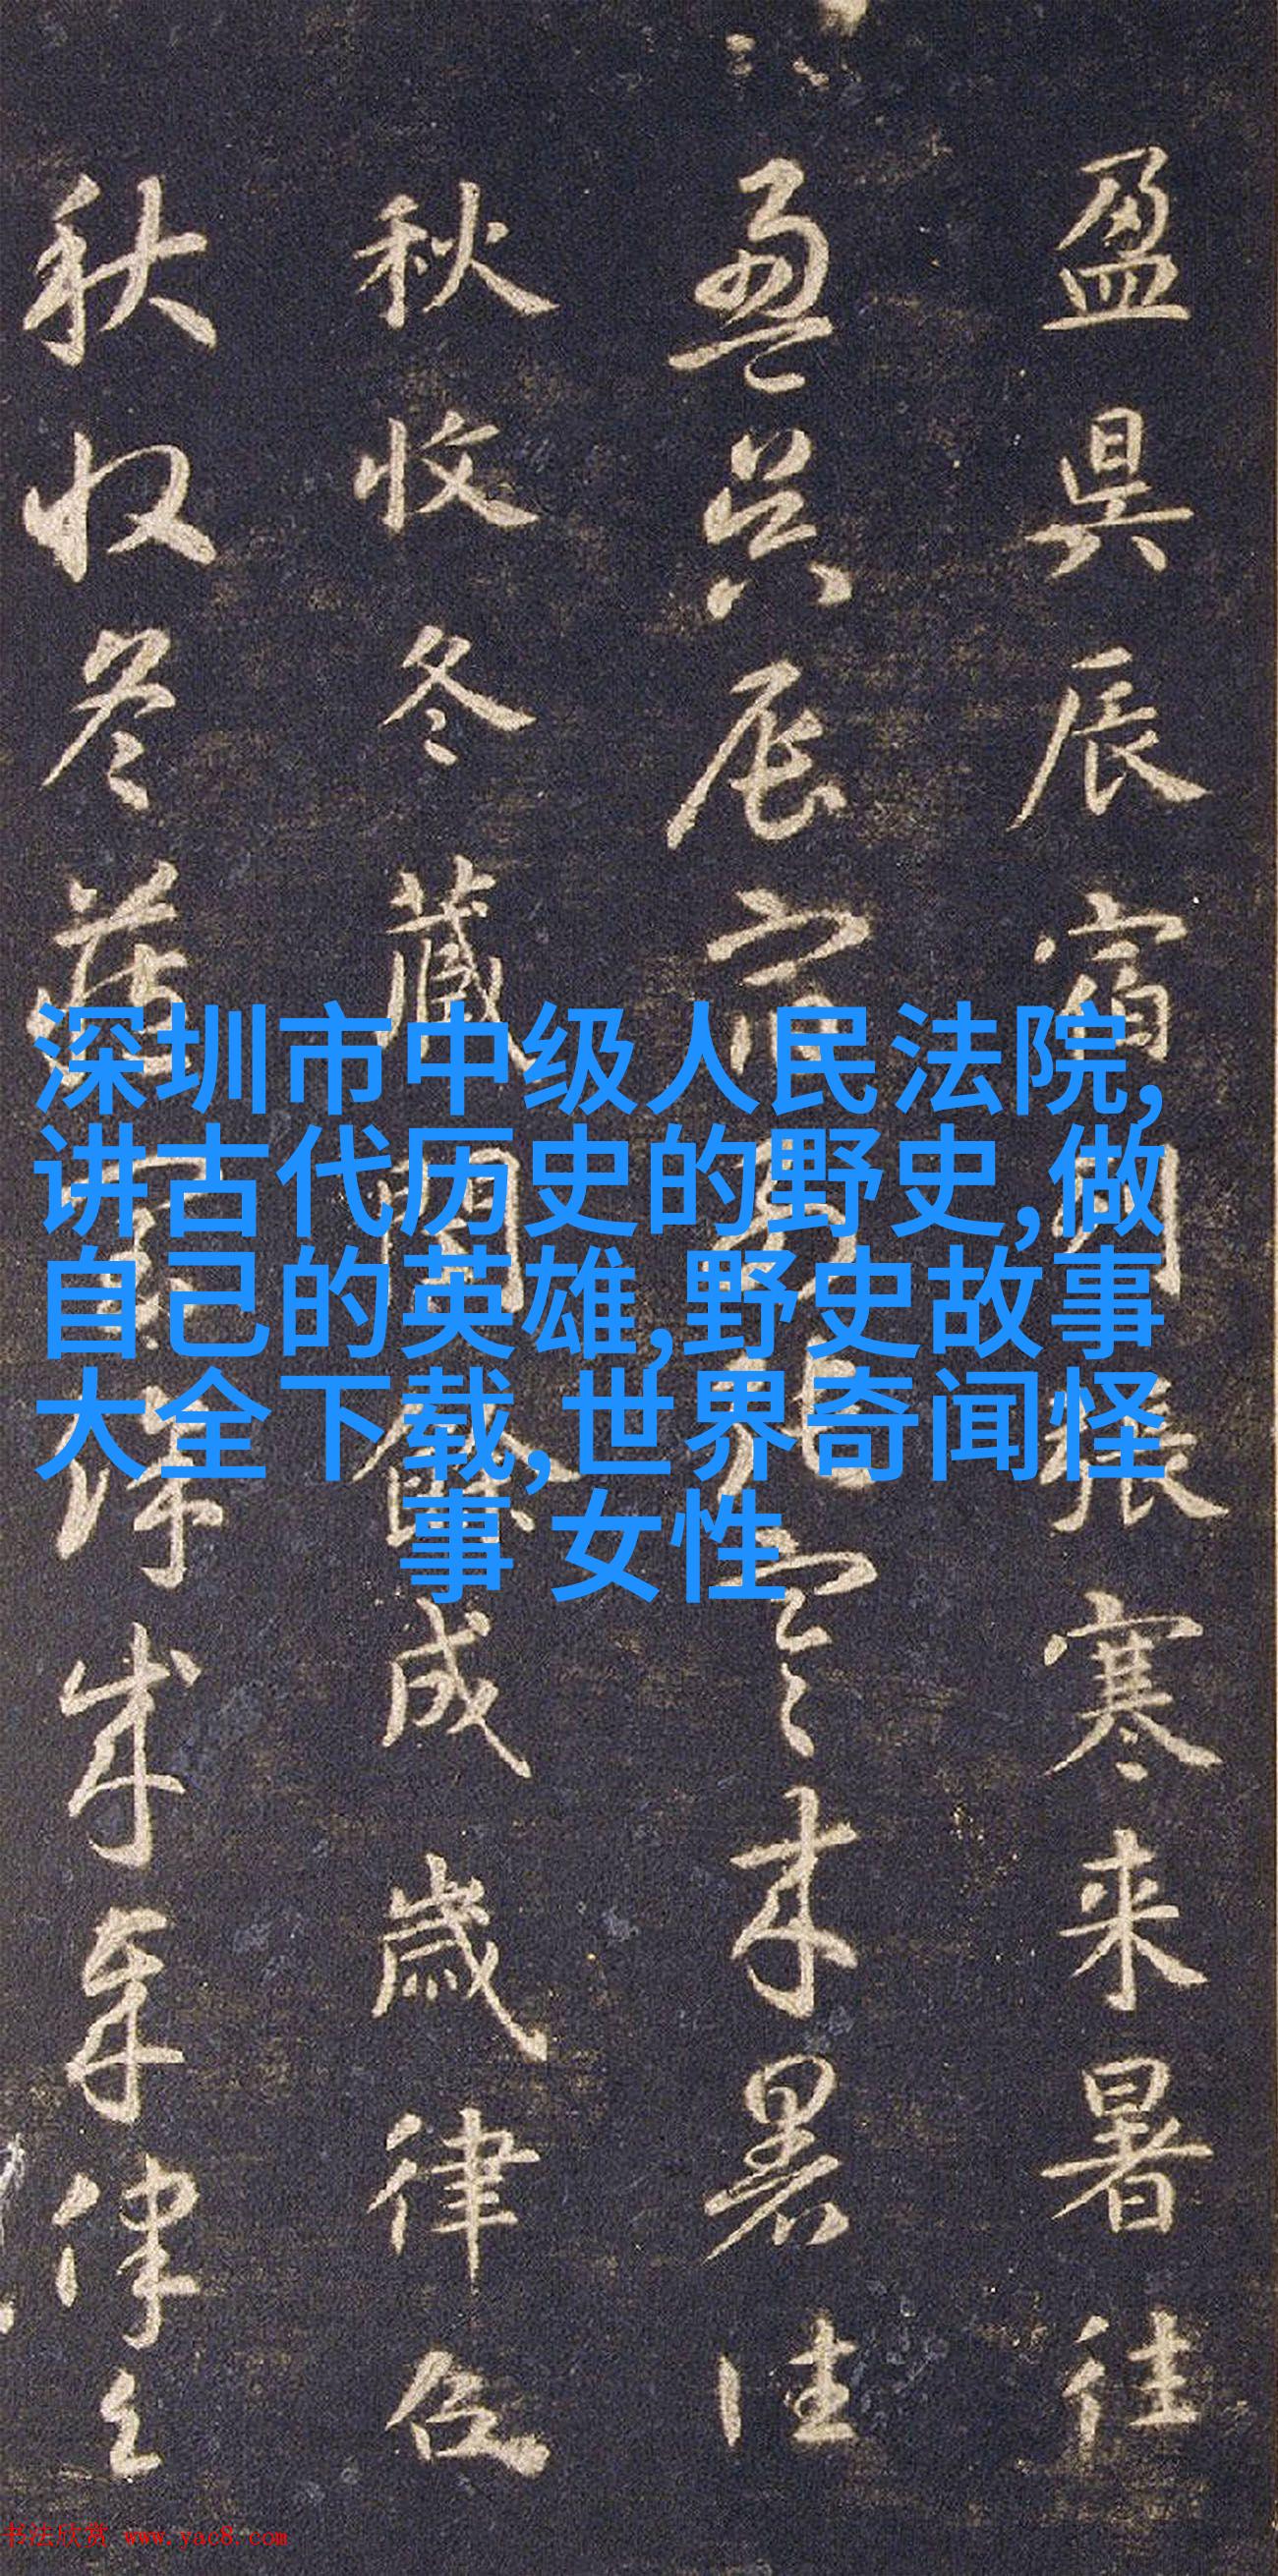 盈昃辰宿列張寒来暑往
盈昃辰宿列張寒来暑往
秋收冬藏閏餘成歲律召
秋收冬藏閏餘成歲律召
深圳市中级人民法院,
讲古代历史的野史,做
自己的英雄,野史故事
大全下载,世界奇闻怪
事 女性
书法欣赏 www.yac8.com